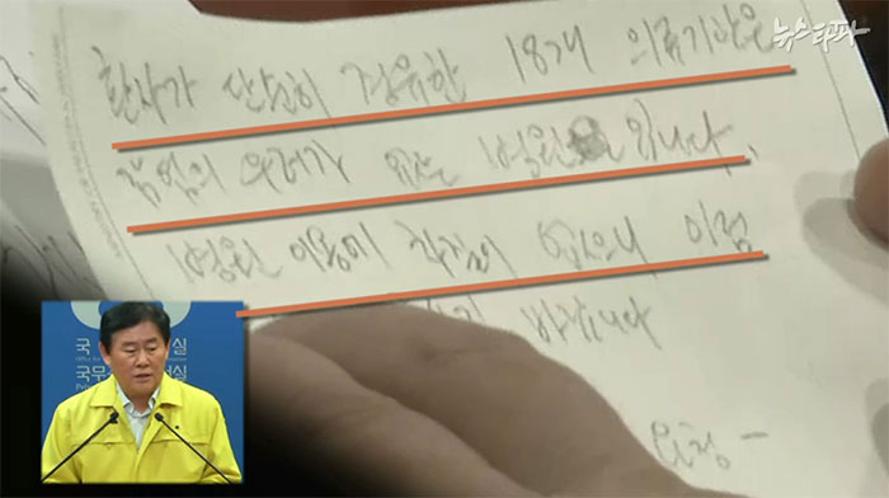 뉴스타파
환자가 단순히 경유한 18개 의료기관은
감염의 우려가 없는 병원 입니다.
병원 이용에 차질이 없으니 이점
바랍니다
국 실
국무 실